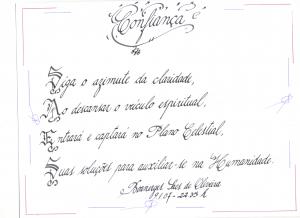 Confiança
Siga o azimute da claridade,
Ao descansar o veículo espiritual,
Entrará e captará no Plano Celestial,
Suas soluções para auxiliar-se na Humanidade.
de Oliveira